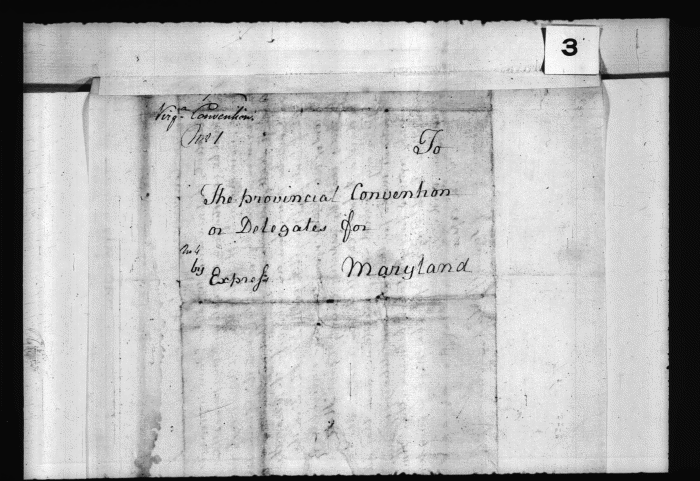 3
Virgᵃ Convention.
No 1
To
The provincial Convention
or Delegates for
No 4
by Express
Maryland